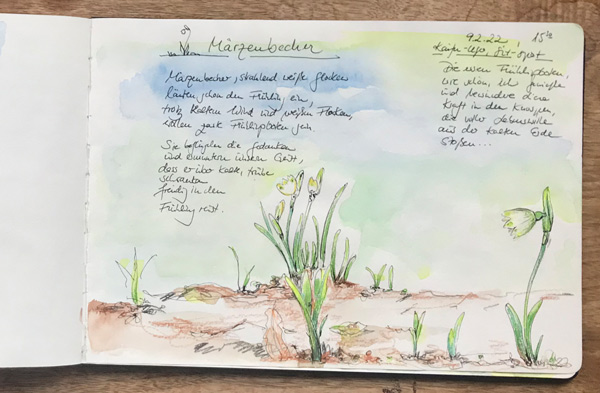 Märzenbecher
Märzenbecher, strahlend weiße Glocken
läuten schon den Frühling ein,
trotz kaltem Wind und weißen Flocken,
wollen zarte Frühlingsboten sein.
Sie beflügeln die Gedanken
und ermuntern unsren Geist,
dass er über kalte, trübe
Schranken
freudig in den
Frühling reist.
9.2.22 15 ½
Die ersten Frühlingsboten,
wie schön. Ich genieße
und bewundere diese
Kraft in den Knospen,
die voller Lebenswille
aus der kalten Erde
stoßen...